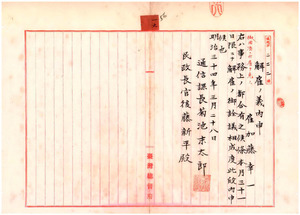 解雇ノ義内申
雇 加藤幸一
右ハ事務上ノ都合有之候條本月三十一
日限リ解雇ノ御詮議相成度此段内申
候也
明治三十四年三月二十八日
通信課長菊池京太郎
民政長官後藤新平殿
臺灣總督府